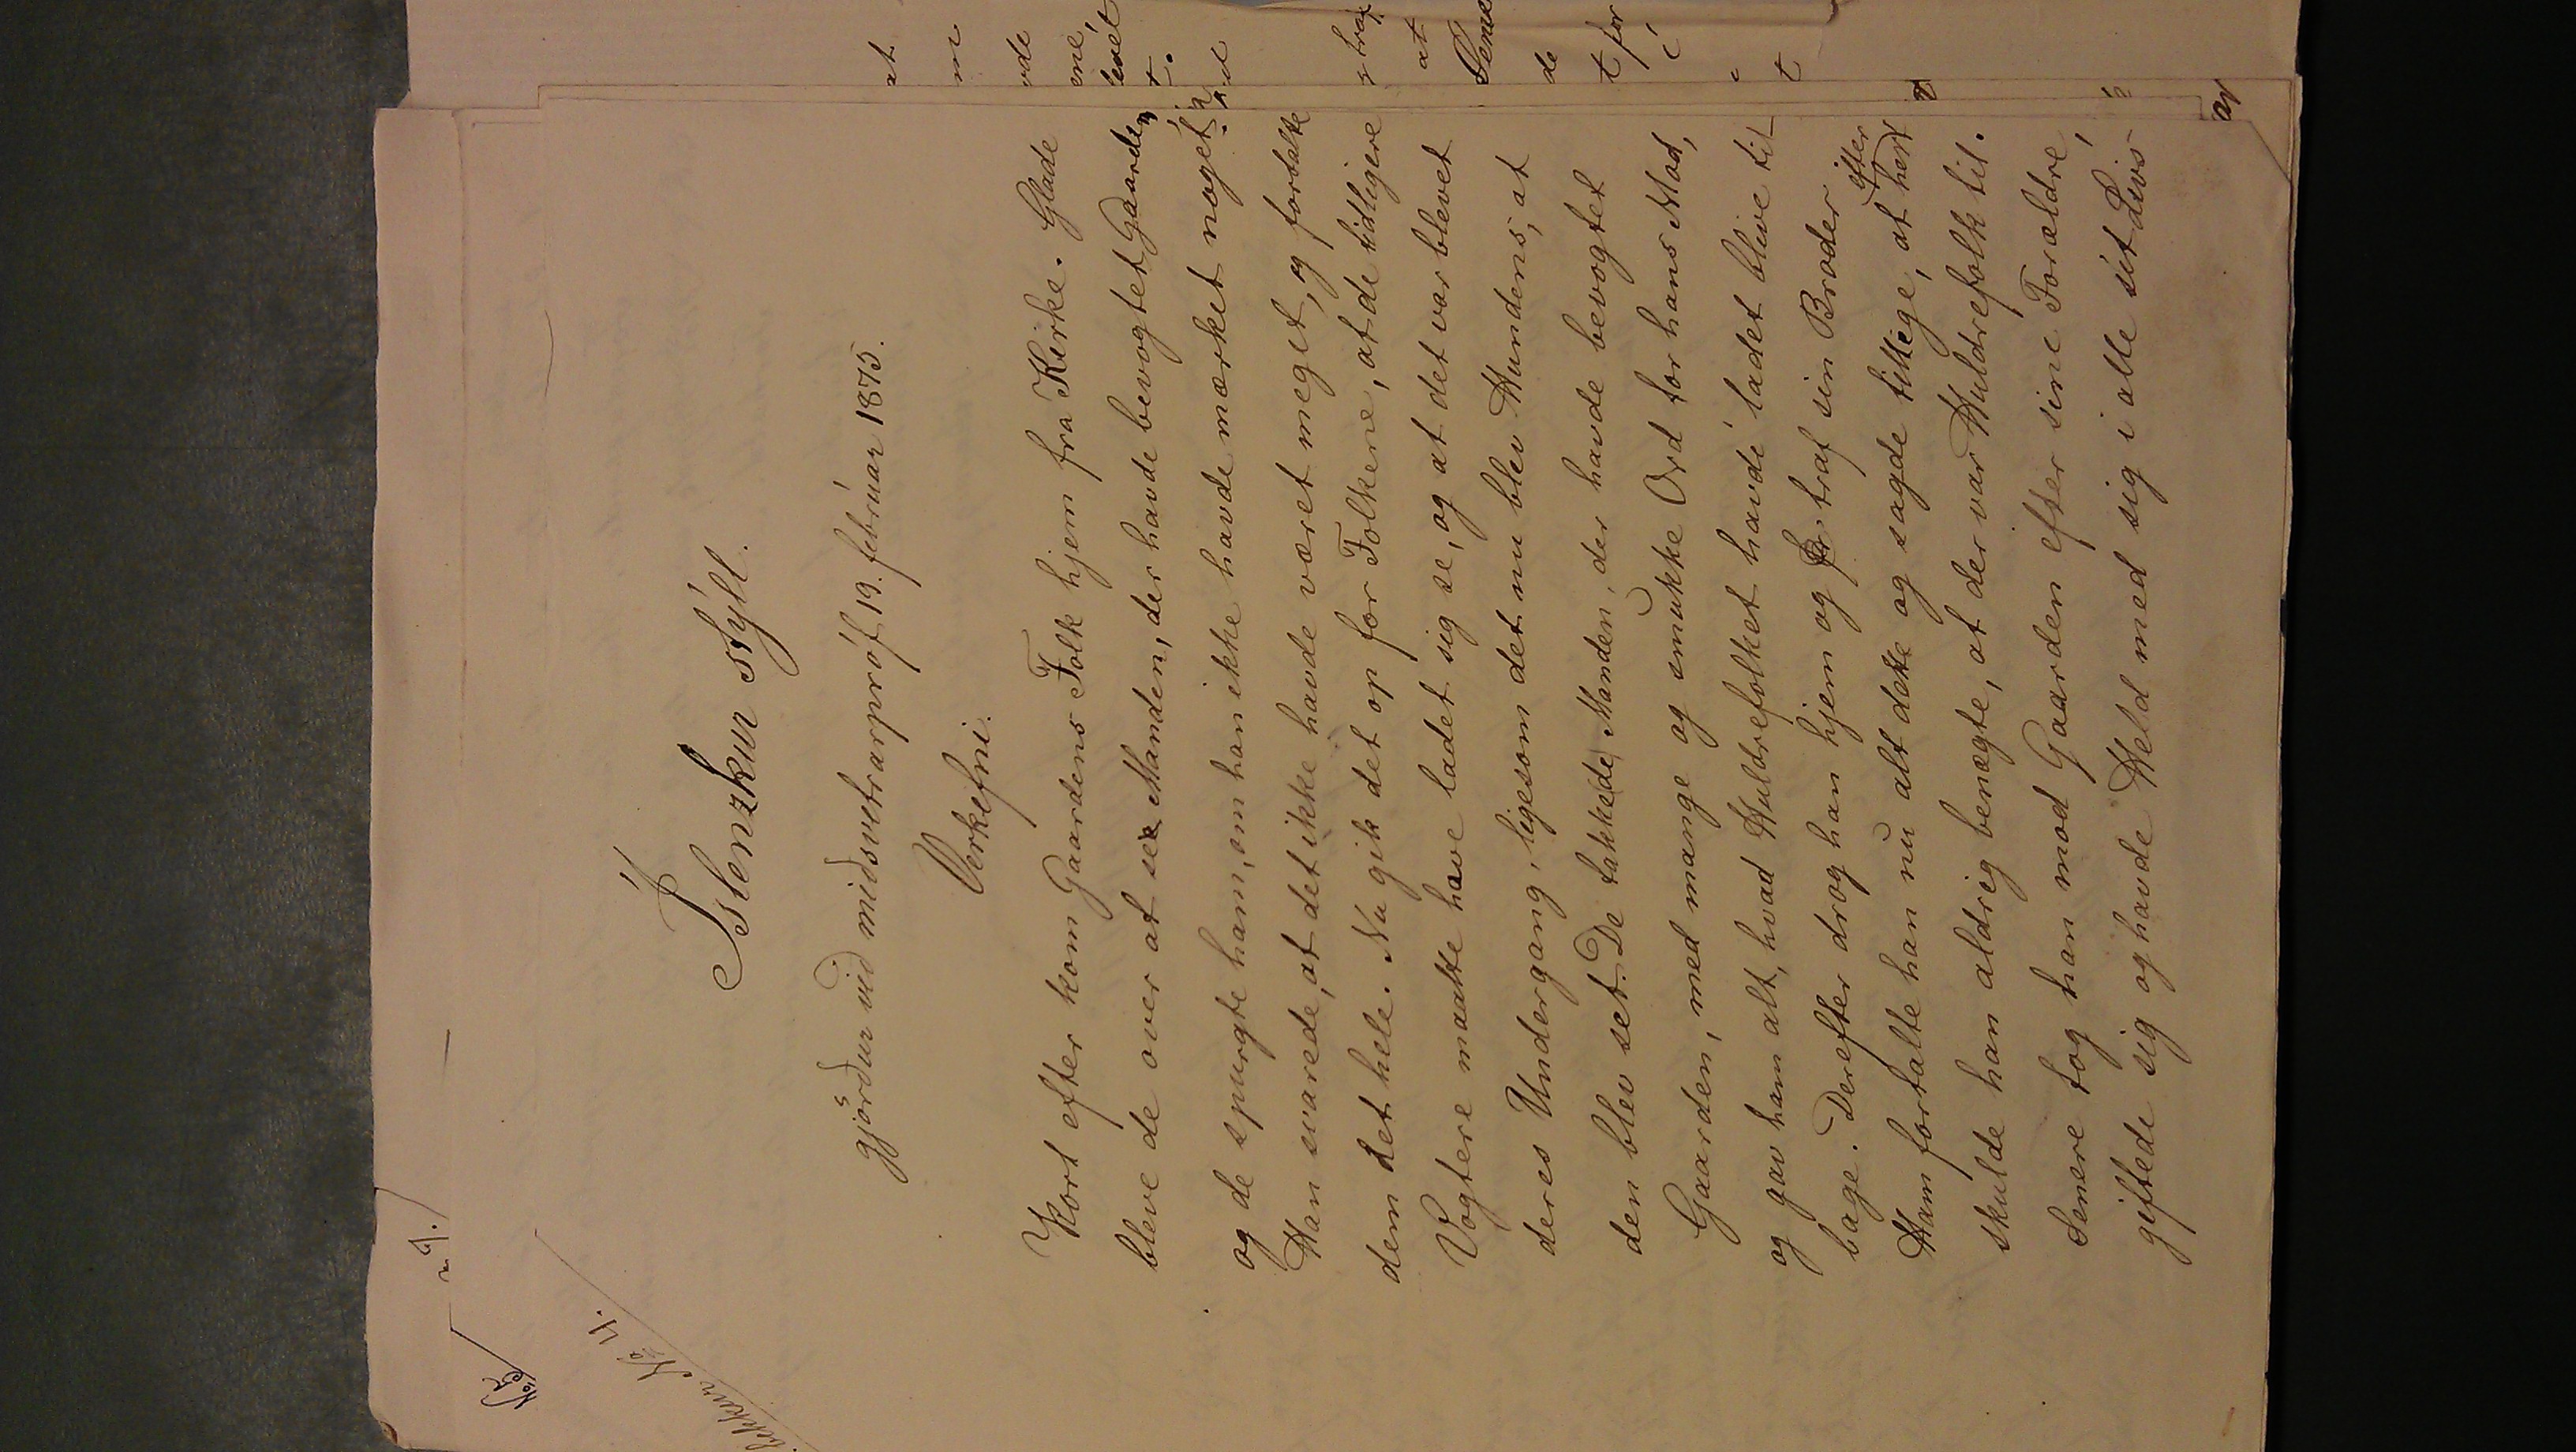 bekkur No 4.
Íslenzkur stýll.
gjörður við miðsvetrarpróf 19. februar 1875.
Verkefni.
Kort efter kom Gaardens Folk hjem fra Kirke. Glade
bleve de over at se Manden, der havde bevogtet Gaarden,
og de spurgte ham, om han ikke havde mærket noget.
Han svarede, at det ikke havde været meget, og fortalte
dem det hele. Nu gik det op for Folkene, at de tidligere
Vogtere maatte have ladet sig se, og at det var blevet
deres Undergang, ligesom det nu blev Hundens, at
den blev set. De takkede Manden, der havde bevogtet
Gaarden, med mange og smukke Ord for hans Mod,
og gav ham alt, hvad Huldrefolket havde ladet blive til-
bage. Derefter drog han hjem og traf sin Broder
Ham fortalte han nu alt dette og sagde tillige, at herefter
skulde han aldrig benægte, at der var Huldrefolk til.
Senere tog han mod Gaarden efter sine Forældre,
giftede sig og havde Held med sig i alle sit Livs